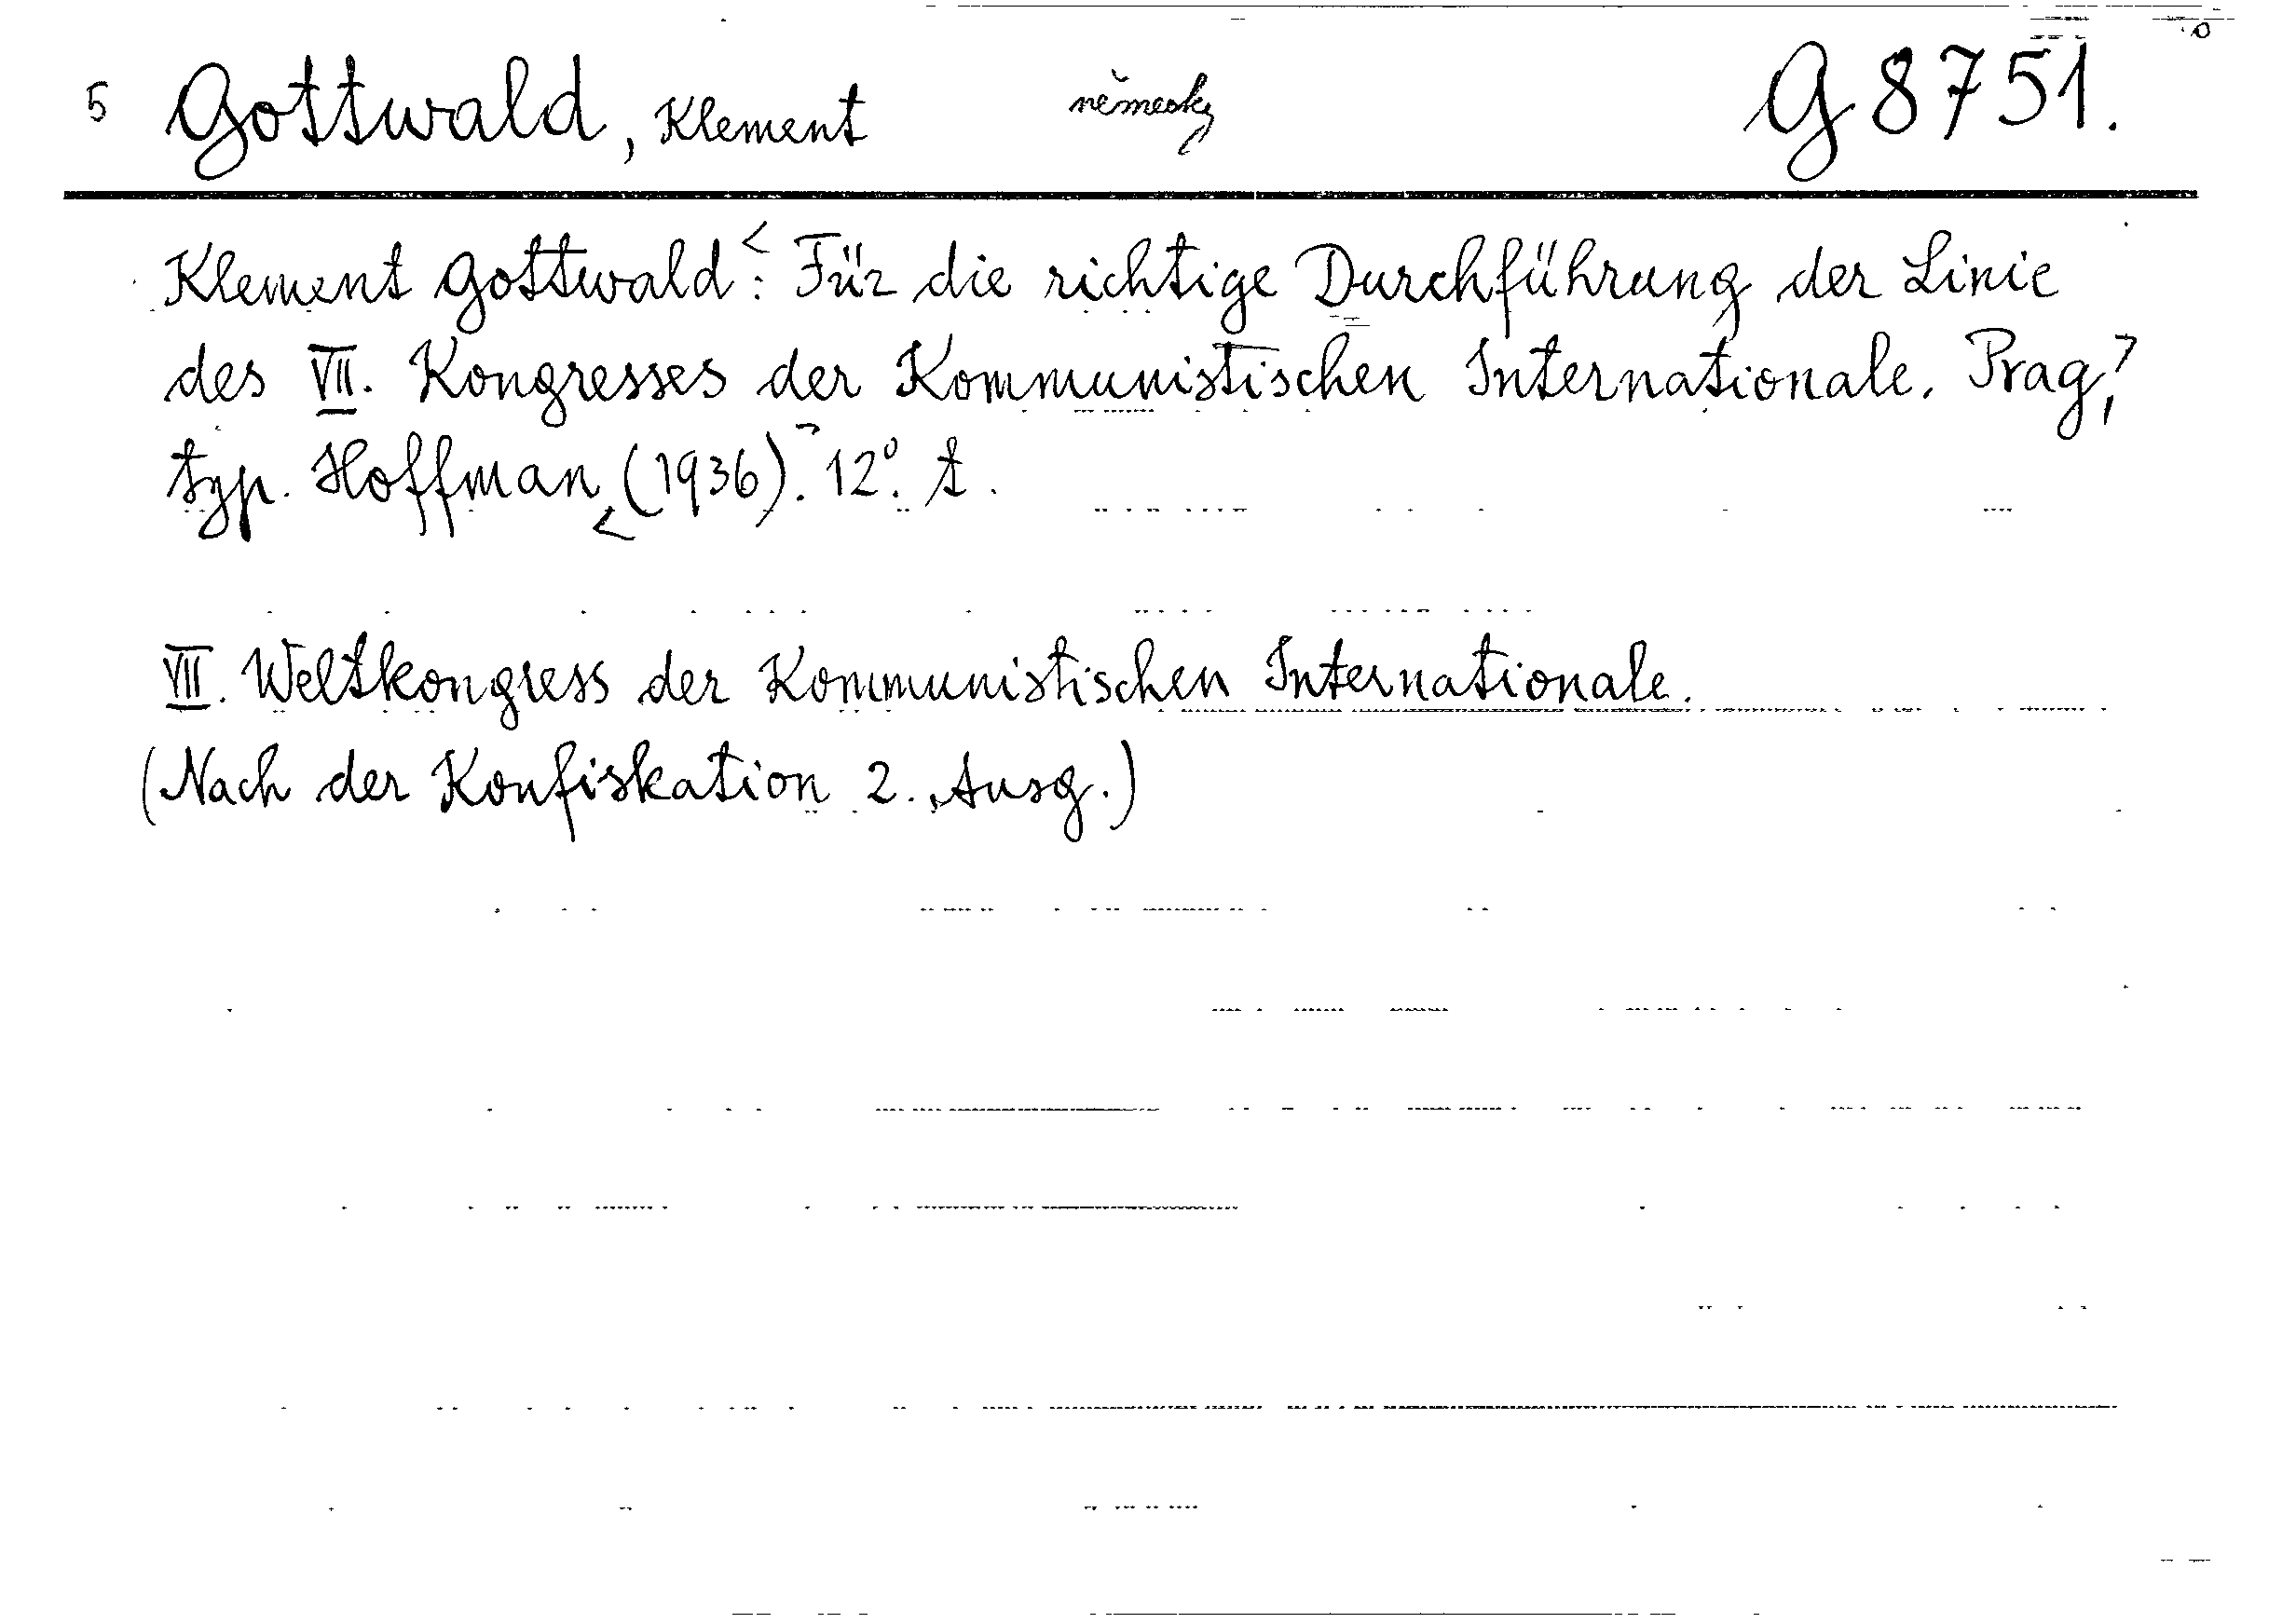 5 Gottwald, Klement německy G 8751.
Klement Gottwald: Für die richtige Durchführung der Linie
des VII. Kongresses der Kommunistischen Internationale. Prag,
typ. Hoffman (1936). 12°. t.
VII. Weltkongress der Kommunistischen Internationale.
(Nach der Konfiskation 2. Ausg.)